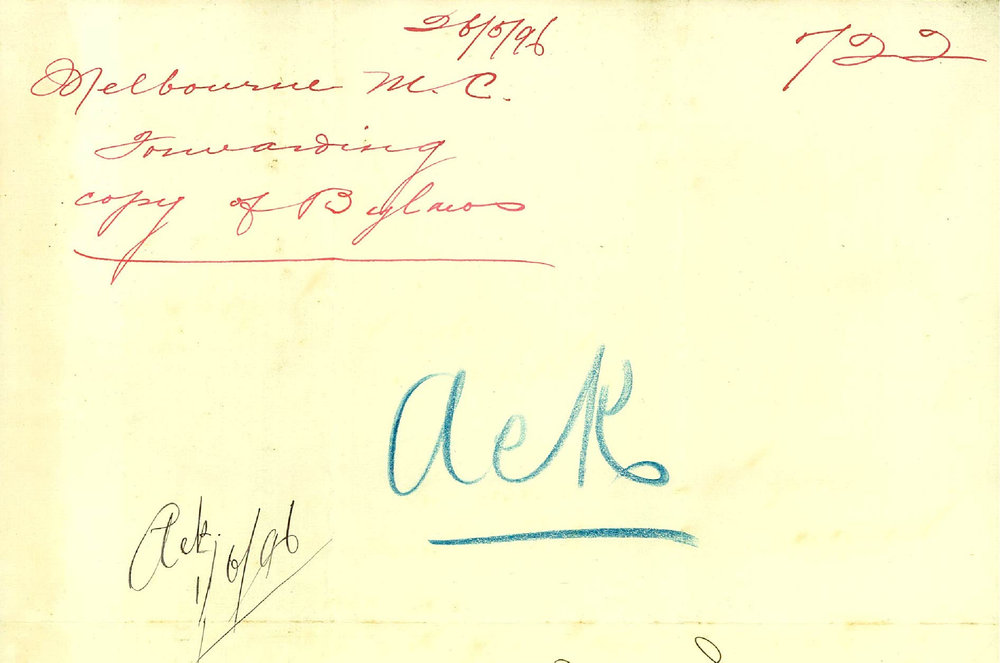 26/5/96
722
Melbourne M.C.
Forwarding
copy of Bylaws
Ack
Ack.
1/6/96